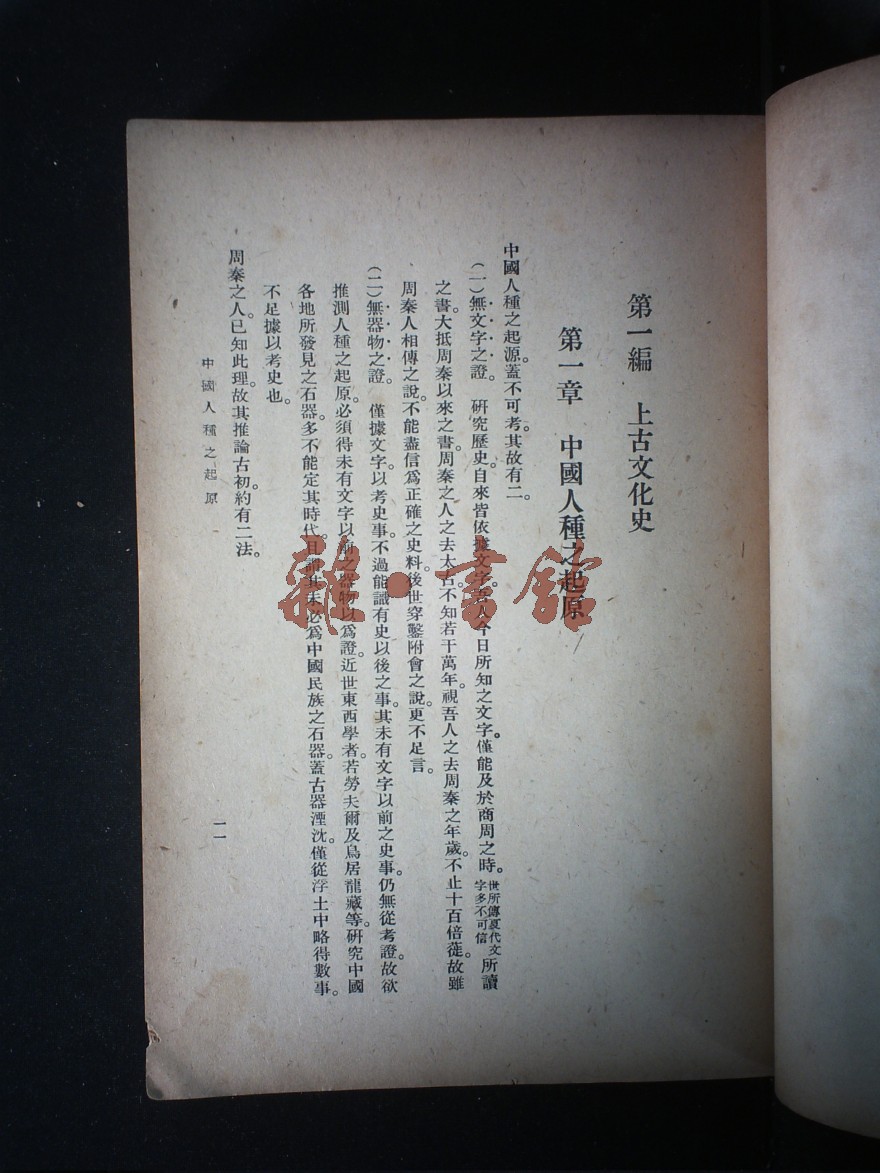 第一編　上古文化史
第一章　中國人種之起原
中國人種之起源。蓋不可考。其故有二。
(一)無文字之證　研究歷史。自來皆依據文字。吾人今日所知之文字。僅能及於商周之時。世所傳夏代文字多不可信所讀
之書。大抵周秦以來之書。周秦之人之去太古。不知若干萬年。視吾人之去周秦之年歲。不止十百倍蓰。故雖
周秦人相傳之說。不能盡信爲正確之史料。後世穿鑿附會之說。更不足言。
(二)無器物之證。　僅據文字。以考史事。不過能識有史以後之事。其未有文字以前之史事。仍無從考證。故欲
推測人種之起原。必須得未有文字以前之器物以爲證。近世東西學者。若勞夫爾及鳥居龍藏等。研究中國
各地所發見之石器。多不能定其時代。且謂其未必爲中國民族之石器。蓋古器湮沈。僅從浮土中略得數事。
不足據以考史也。
周秦之人。已知此理。故其推論古初。約有二法。
中國人種之起原
一一
雜·書館